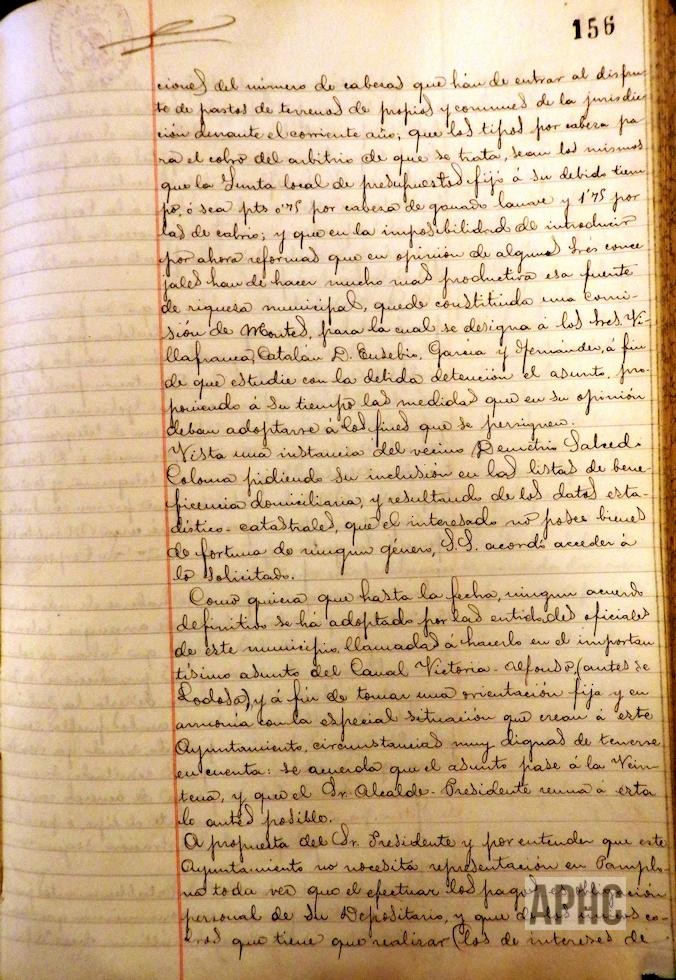 156
ciones del número de cabezas que hán de entrar al disfru-
te de pastos de terrenos de propios y comunes de la jurisdic-
ción durante el corriente año; que los tipos por cabeza pa-
ra el cobro del arbitrio de que se trata, sean los mismos
que la Junta local de presupuestos fijó á su debido tiem
po, ó sea pts 0'75 por cabeza de ganado lanar y 1'75 por
las de cabrio; y que en la imposibilidad de introducir
por ahora reformas que en opinión de algunos Sres conce
jales han de hacer mucho mas productiva esa fuente
de riqueza municipal, quede constituida una comi-
sión de Montes, para la cual se designa á los Sres. Vi-
llafranca, Catalán D. Eusebio, García y Hernández, á fin
de que estudie con la debida detención el asunto, pro-
poniendo á su tiempo las medidas que en su opinión
deban adoptarse á los fines que se persiguen.
Vista una instancia del vecino Demetrio Salcedo
Coloma pidiendo su inclusión en las listas de bene-
ficencia domiciliaria, y resultando de los datos esta-
dístico-catastrales, que el interesado nó posee bienes
de fortuna de ningún género, S.S. acordó acceder á
lo solicitado.
Como quiera que hasta la fecha, ningun acuerdo
definitivo se há adoptado por las entidades oficiales
de este municipio, llamadas á hacerlo en el importan
tísimo asunto del Canal Victoria-Alfonso, (antes de
Lodosa), y á fin de tomar una orientación fija y en
armonía con la especial situación que crean á este
Ayuntamiento, circunstancias muy dignas de tenerse
en cuenta: se acuerda que el asunto pase á la Vein-
tena, y que el Sr. Alcalde-Presidente reuna á esta
lo antes posible.
A propuesta del Sr. Presidente y por entender que este
Ayuntamiento no necesita representación en Pamplo-
na toda vez que el efectuar los pagos es obligación
personal de su Depositario, y que de los únicos co-
bros que tiene que realizar (los de intereses de
APHC